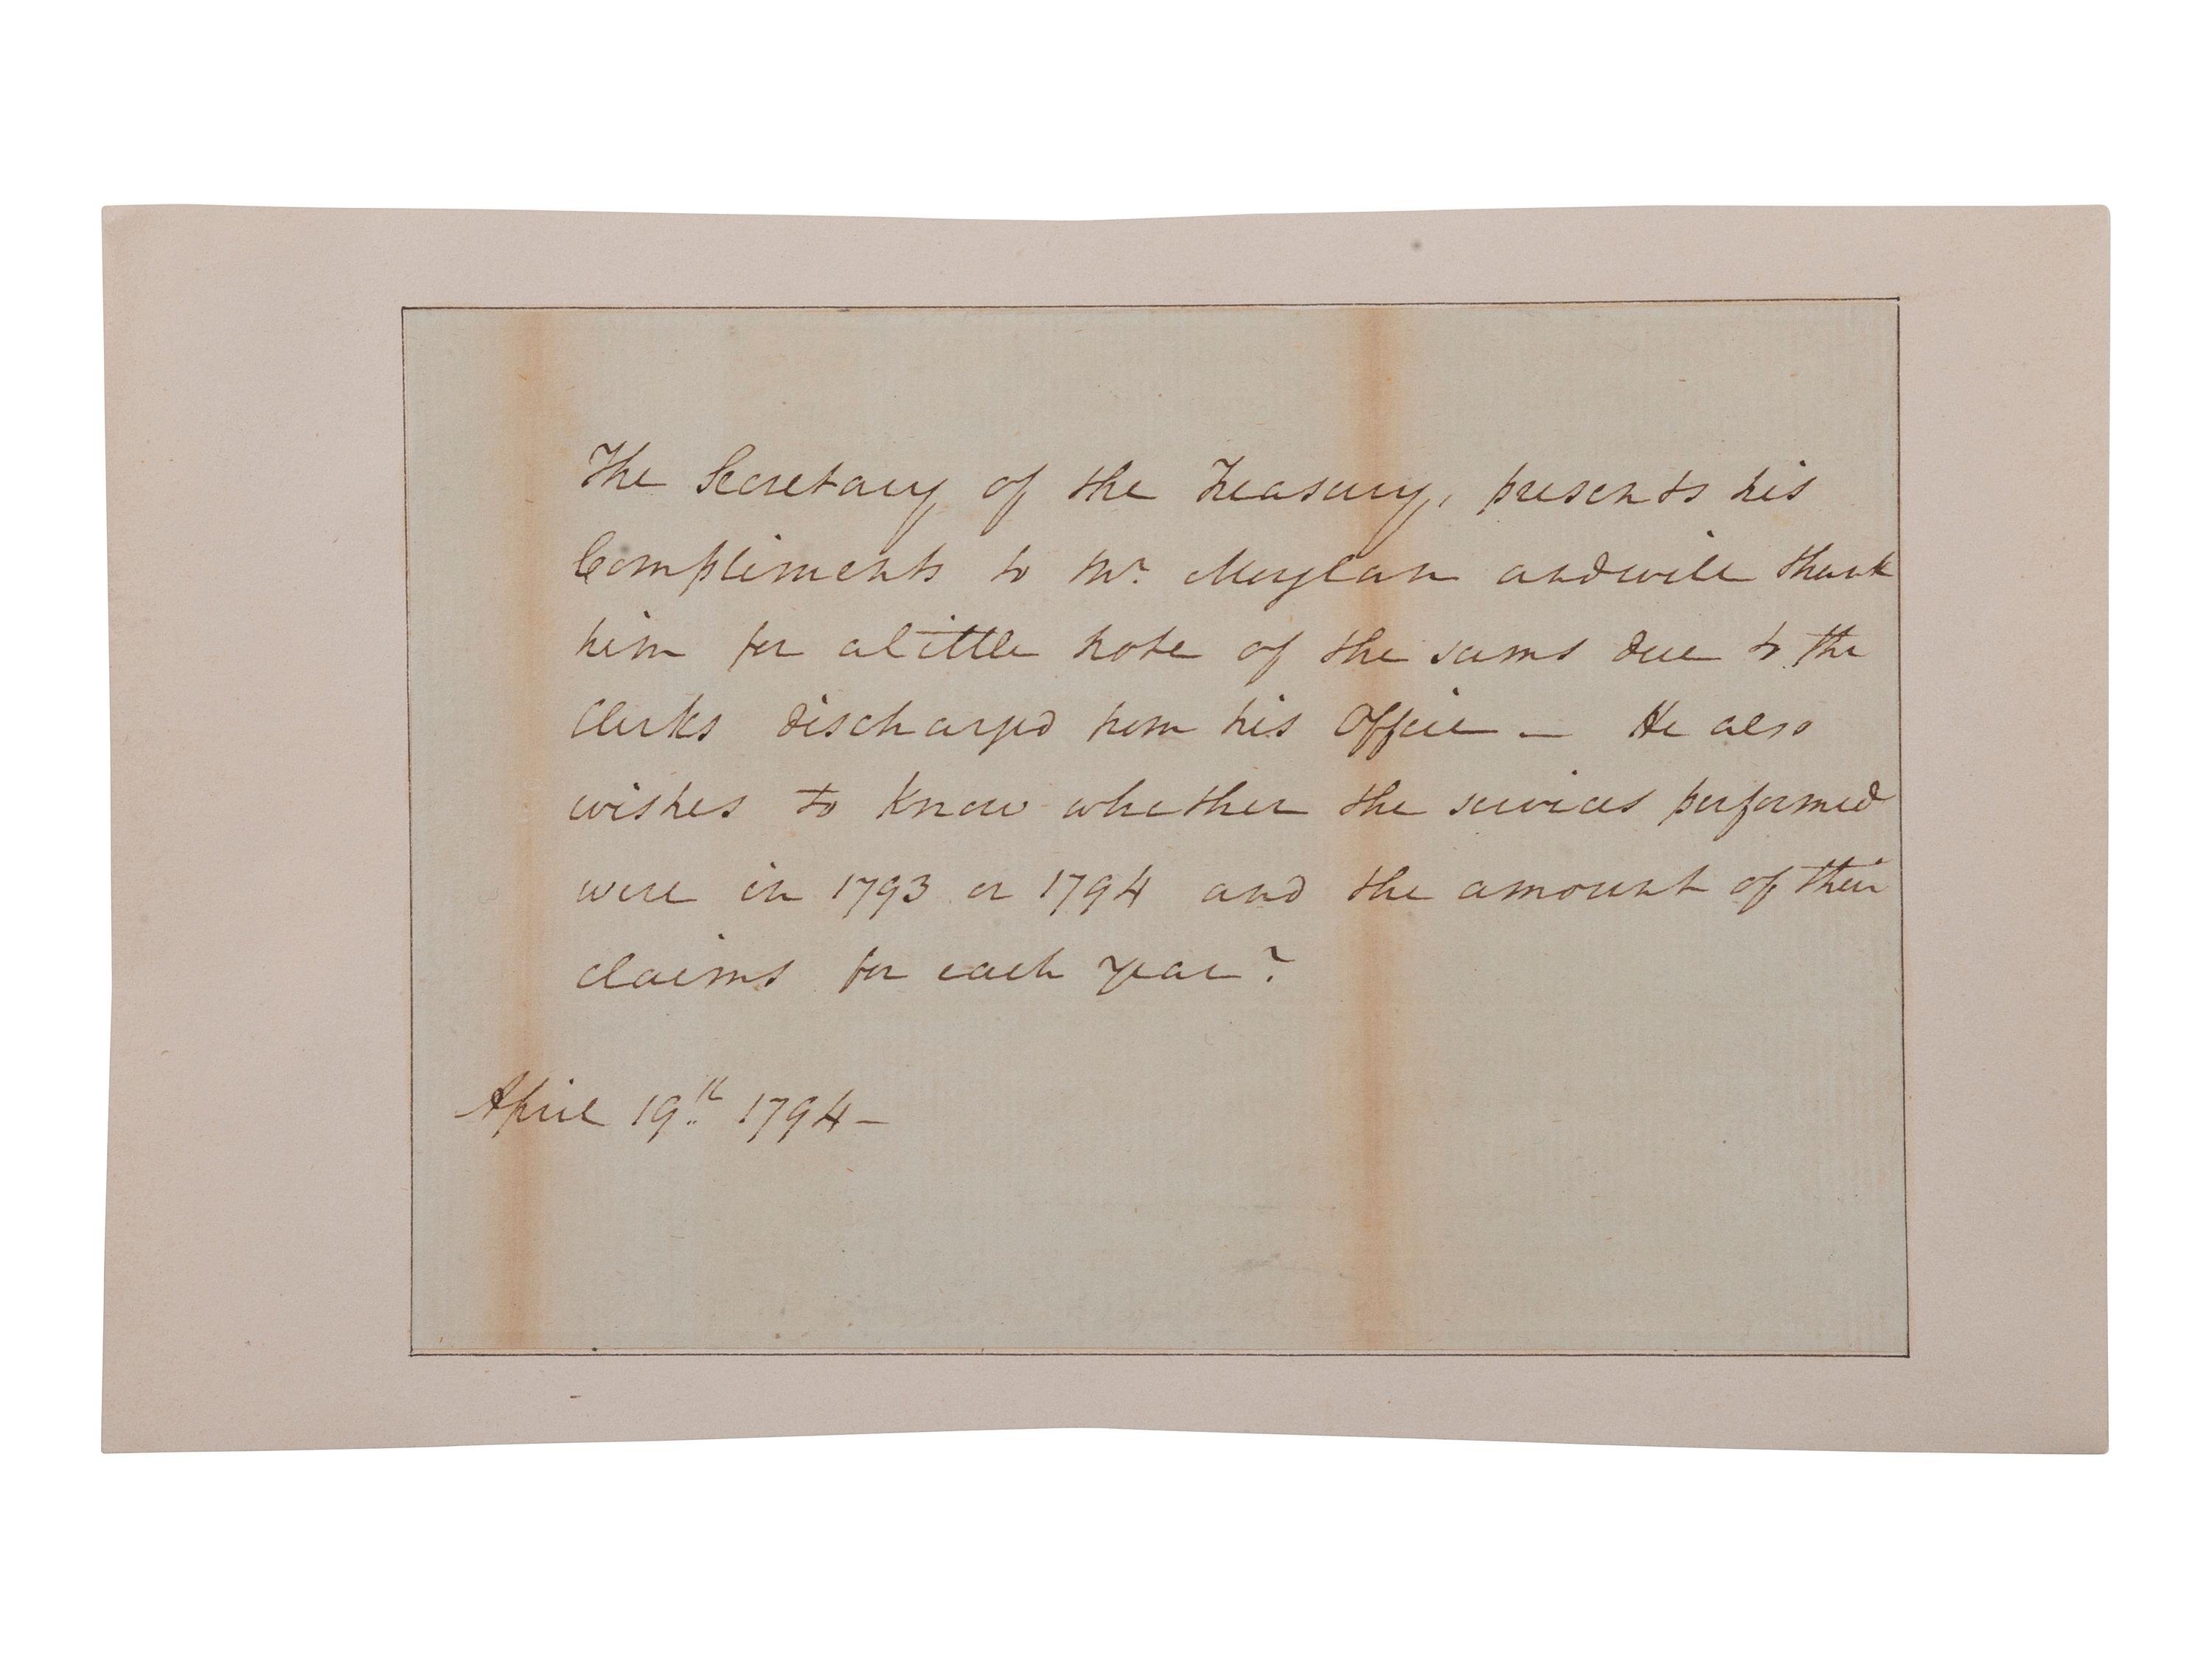 The Secretary of the Treasury, presents his
Compliments to Mr. Meylan and will thank
him for a little note of the sums due to the
Clerks discharged from his Office — He also
wishes to know whether the services performed
were in 1793 or 1794 and the amount of their
claims for each year?
April 19th 1794 —